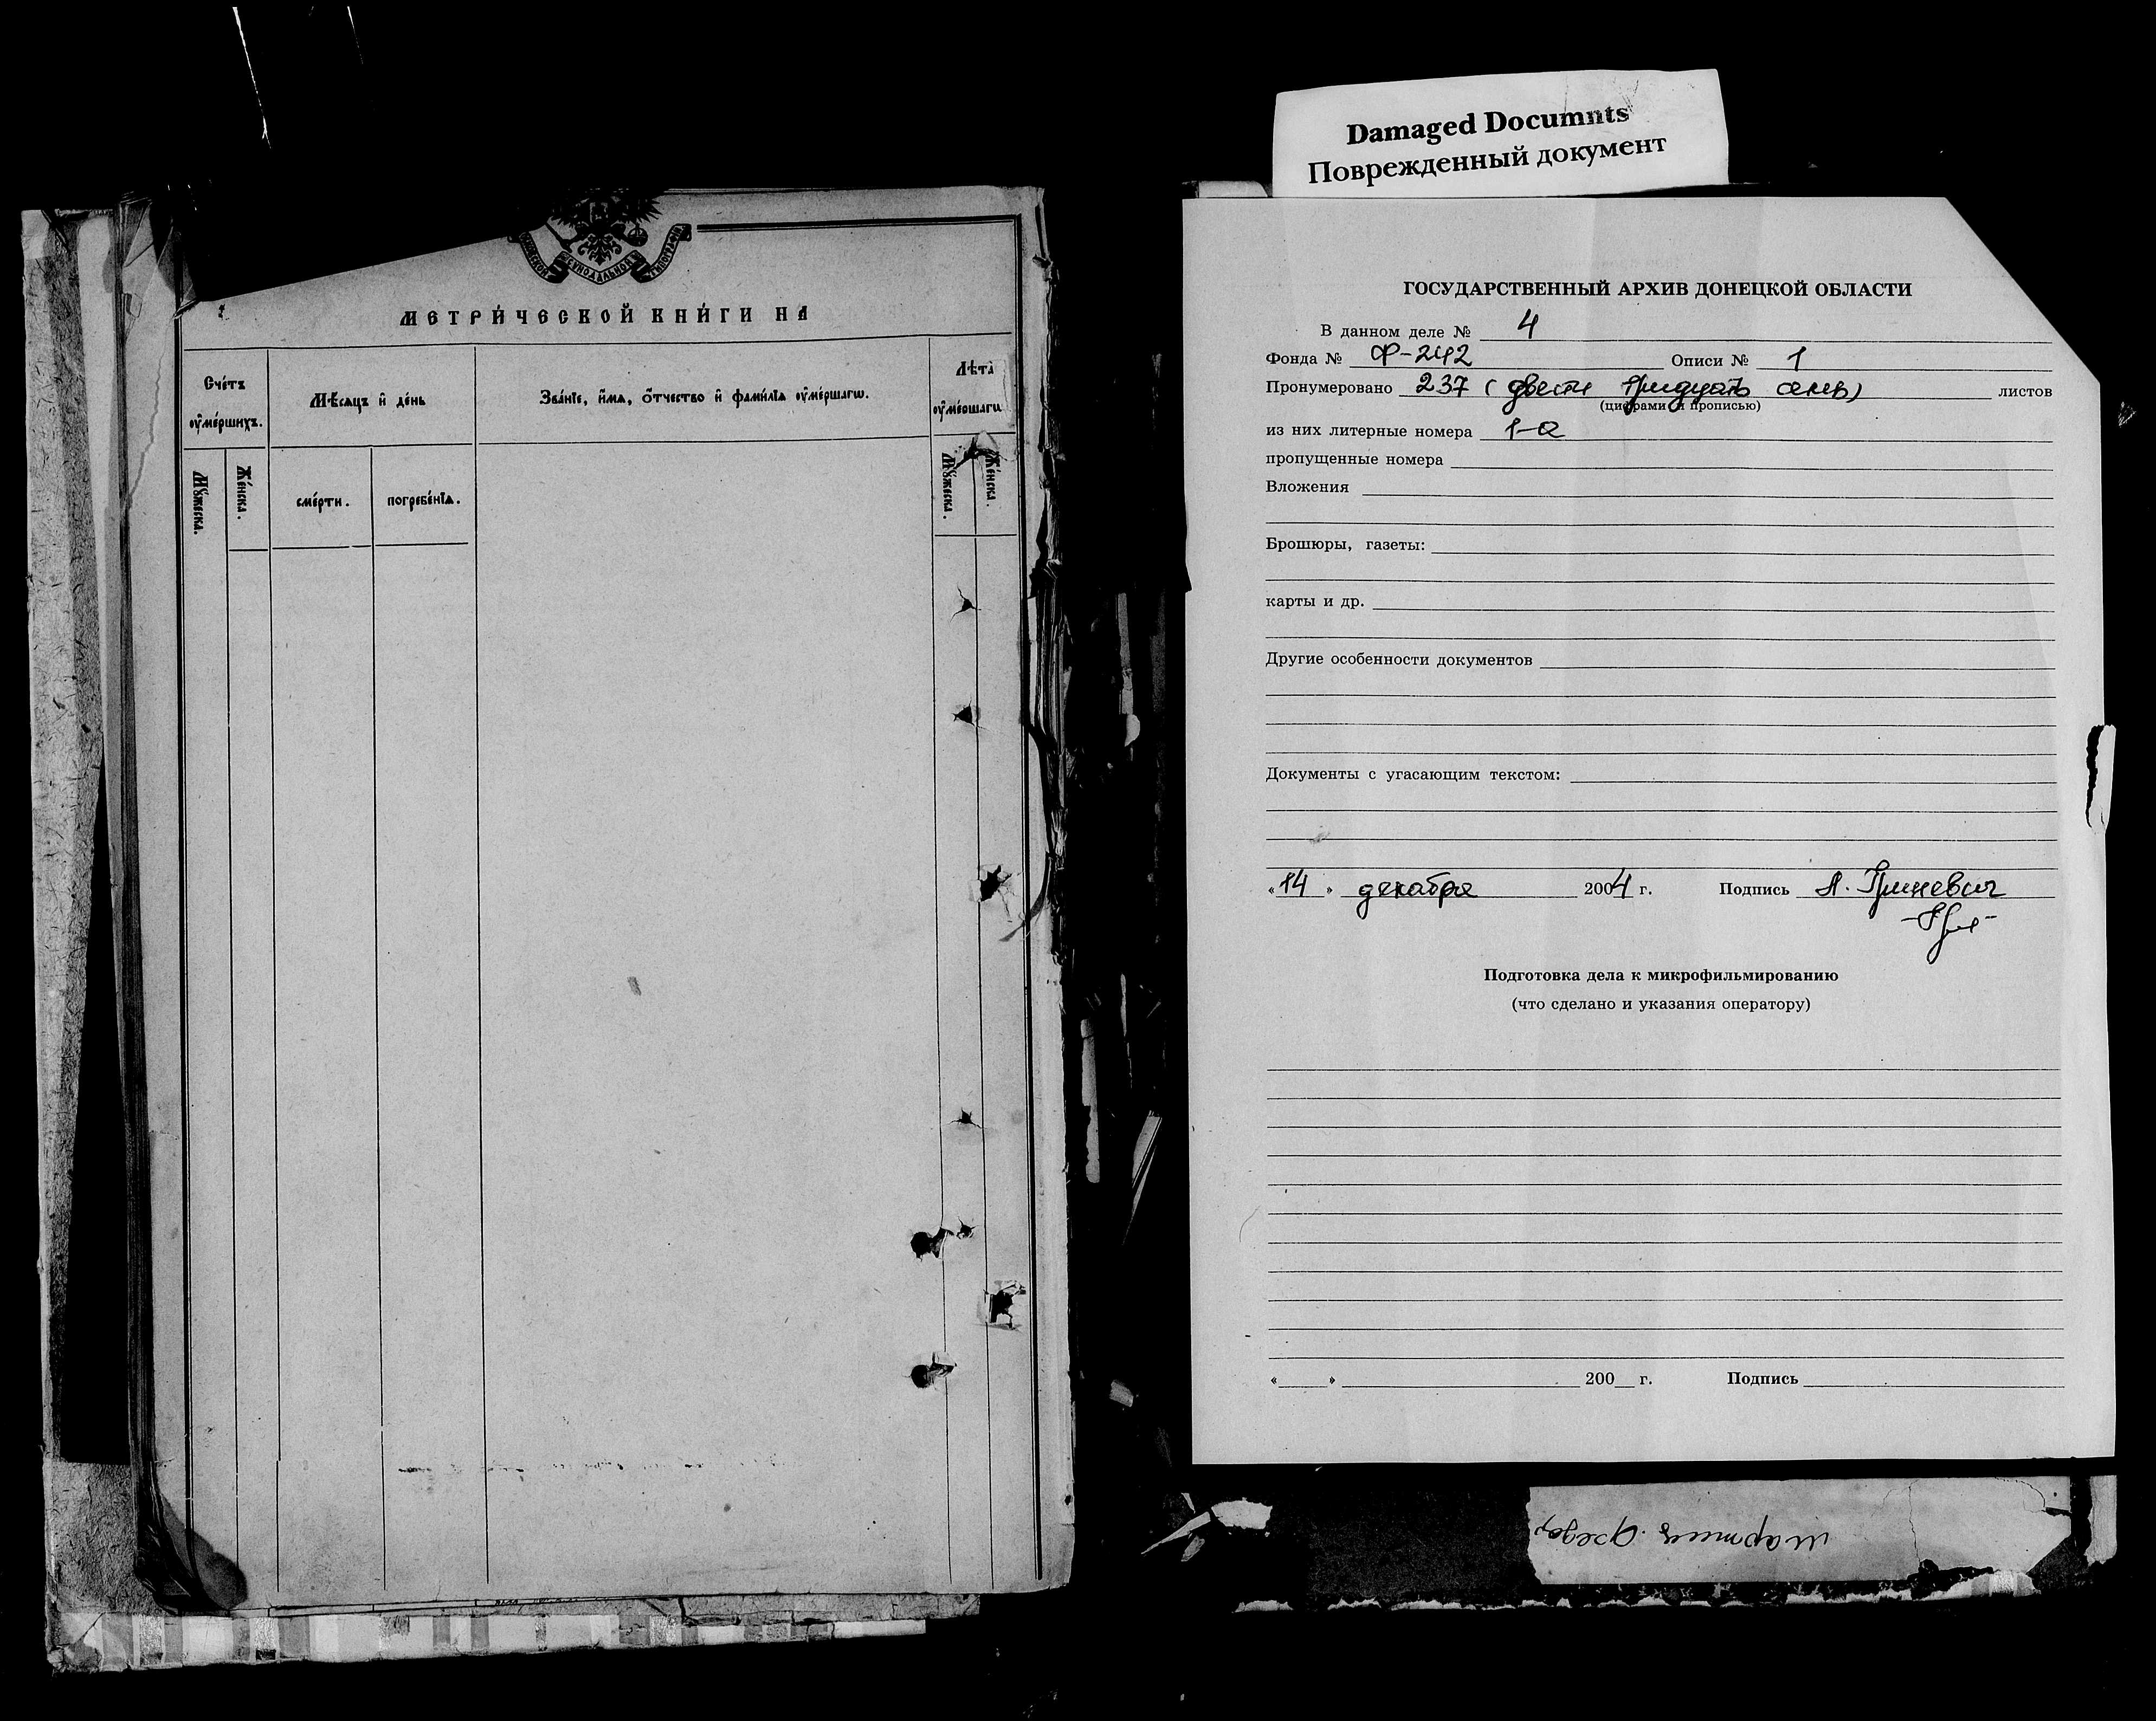 СѴНОДАЛЬНОЙ
МЕТРИ́ЧЕСКОЙ КНИ́ГИ НА
Сче́тъ
ᲂу҆ме́ршихъ.
Мѣ́сяцъ и҆ де́нь
Зва́нїе, и҆́мя, ѻ҆́тчество и҆ фами́лїя ᲂу҆ме́ршагѡ.
Лѣ́та
ᲂу҆ме́ршагѡ
Мꙋ́жеска.
Же́нска.
сме́рти.
погребе́нїя.
Мꙋ́жеска.
Же́нска.
Damaged Documnts
Поврежденный документ
ГОСУДАРСТВЕННЫЙ АРХИВ ДОНЕЦКОЙ ОБЛАСТИ
В данном деле № 4
Фонда № Ф-242 Описи № 1
Пронумеровано 237 (двести тридцать семь) листов
(цифрами и прописью)
из них литерные номера 1-а
пропущенные номера
Вложения
Брошюры, газеты:
карты и др.
Другие особенности документов
Документы с угасающим текстом:
«14» декабря 2004 г. Подпись А. Гриневич
Подготовка дела к микрофильмированию
(что сделано и указания оператору)
« » 200 г. Подпись